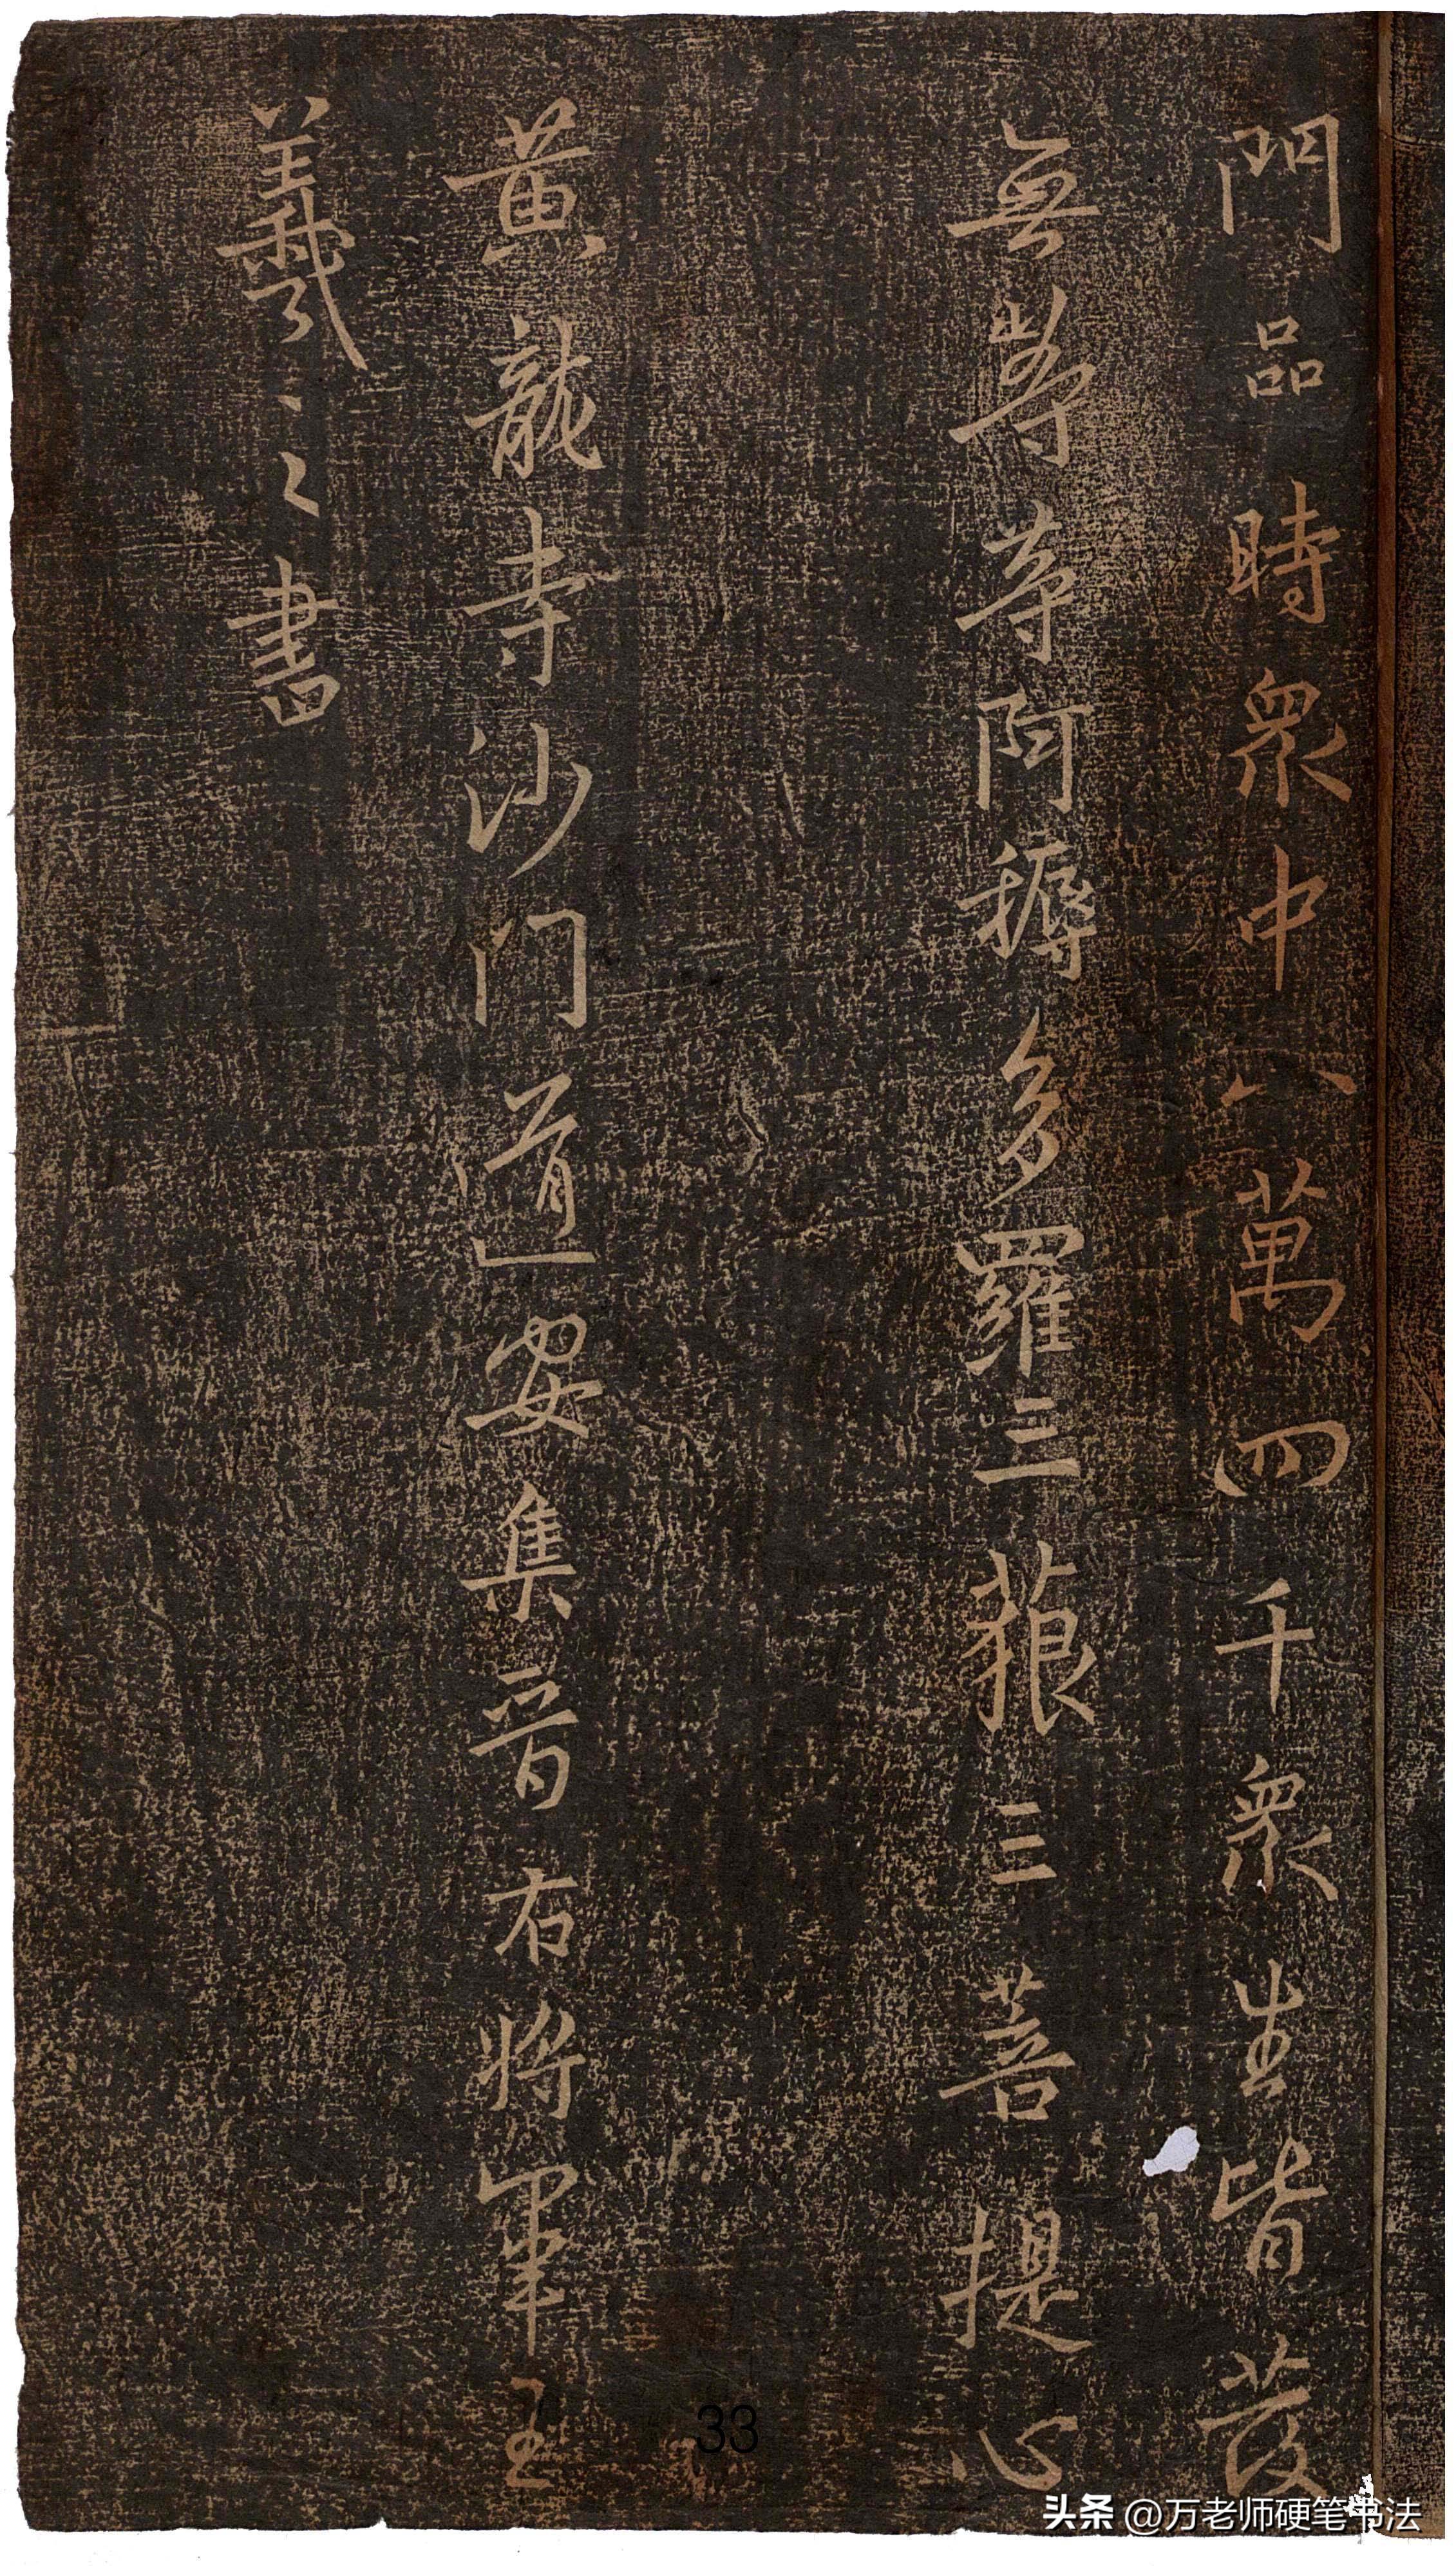 門品時衆中八萬四千衆生皆發
無等等阿耨多羅三藐三菩提心
黃龍寺沙門道安集晉右將軍王
羲之書
33
头条 @万老师硬笔书法